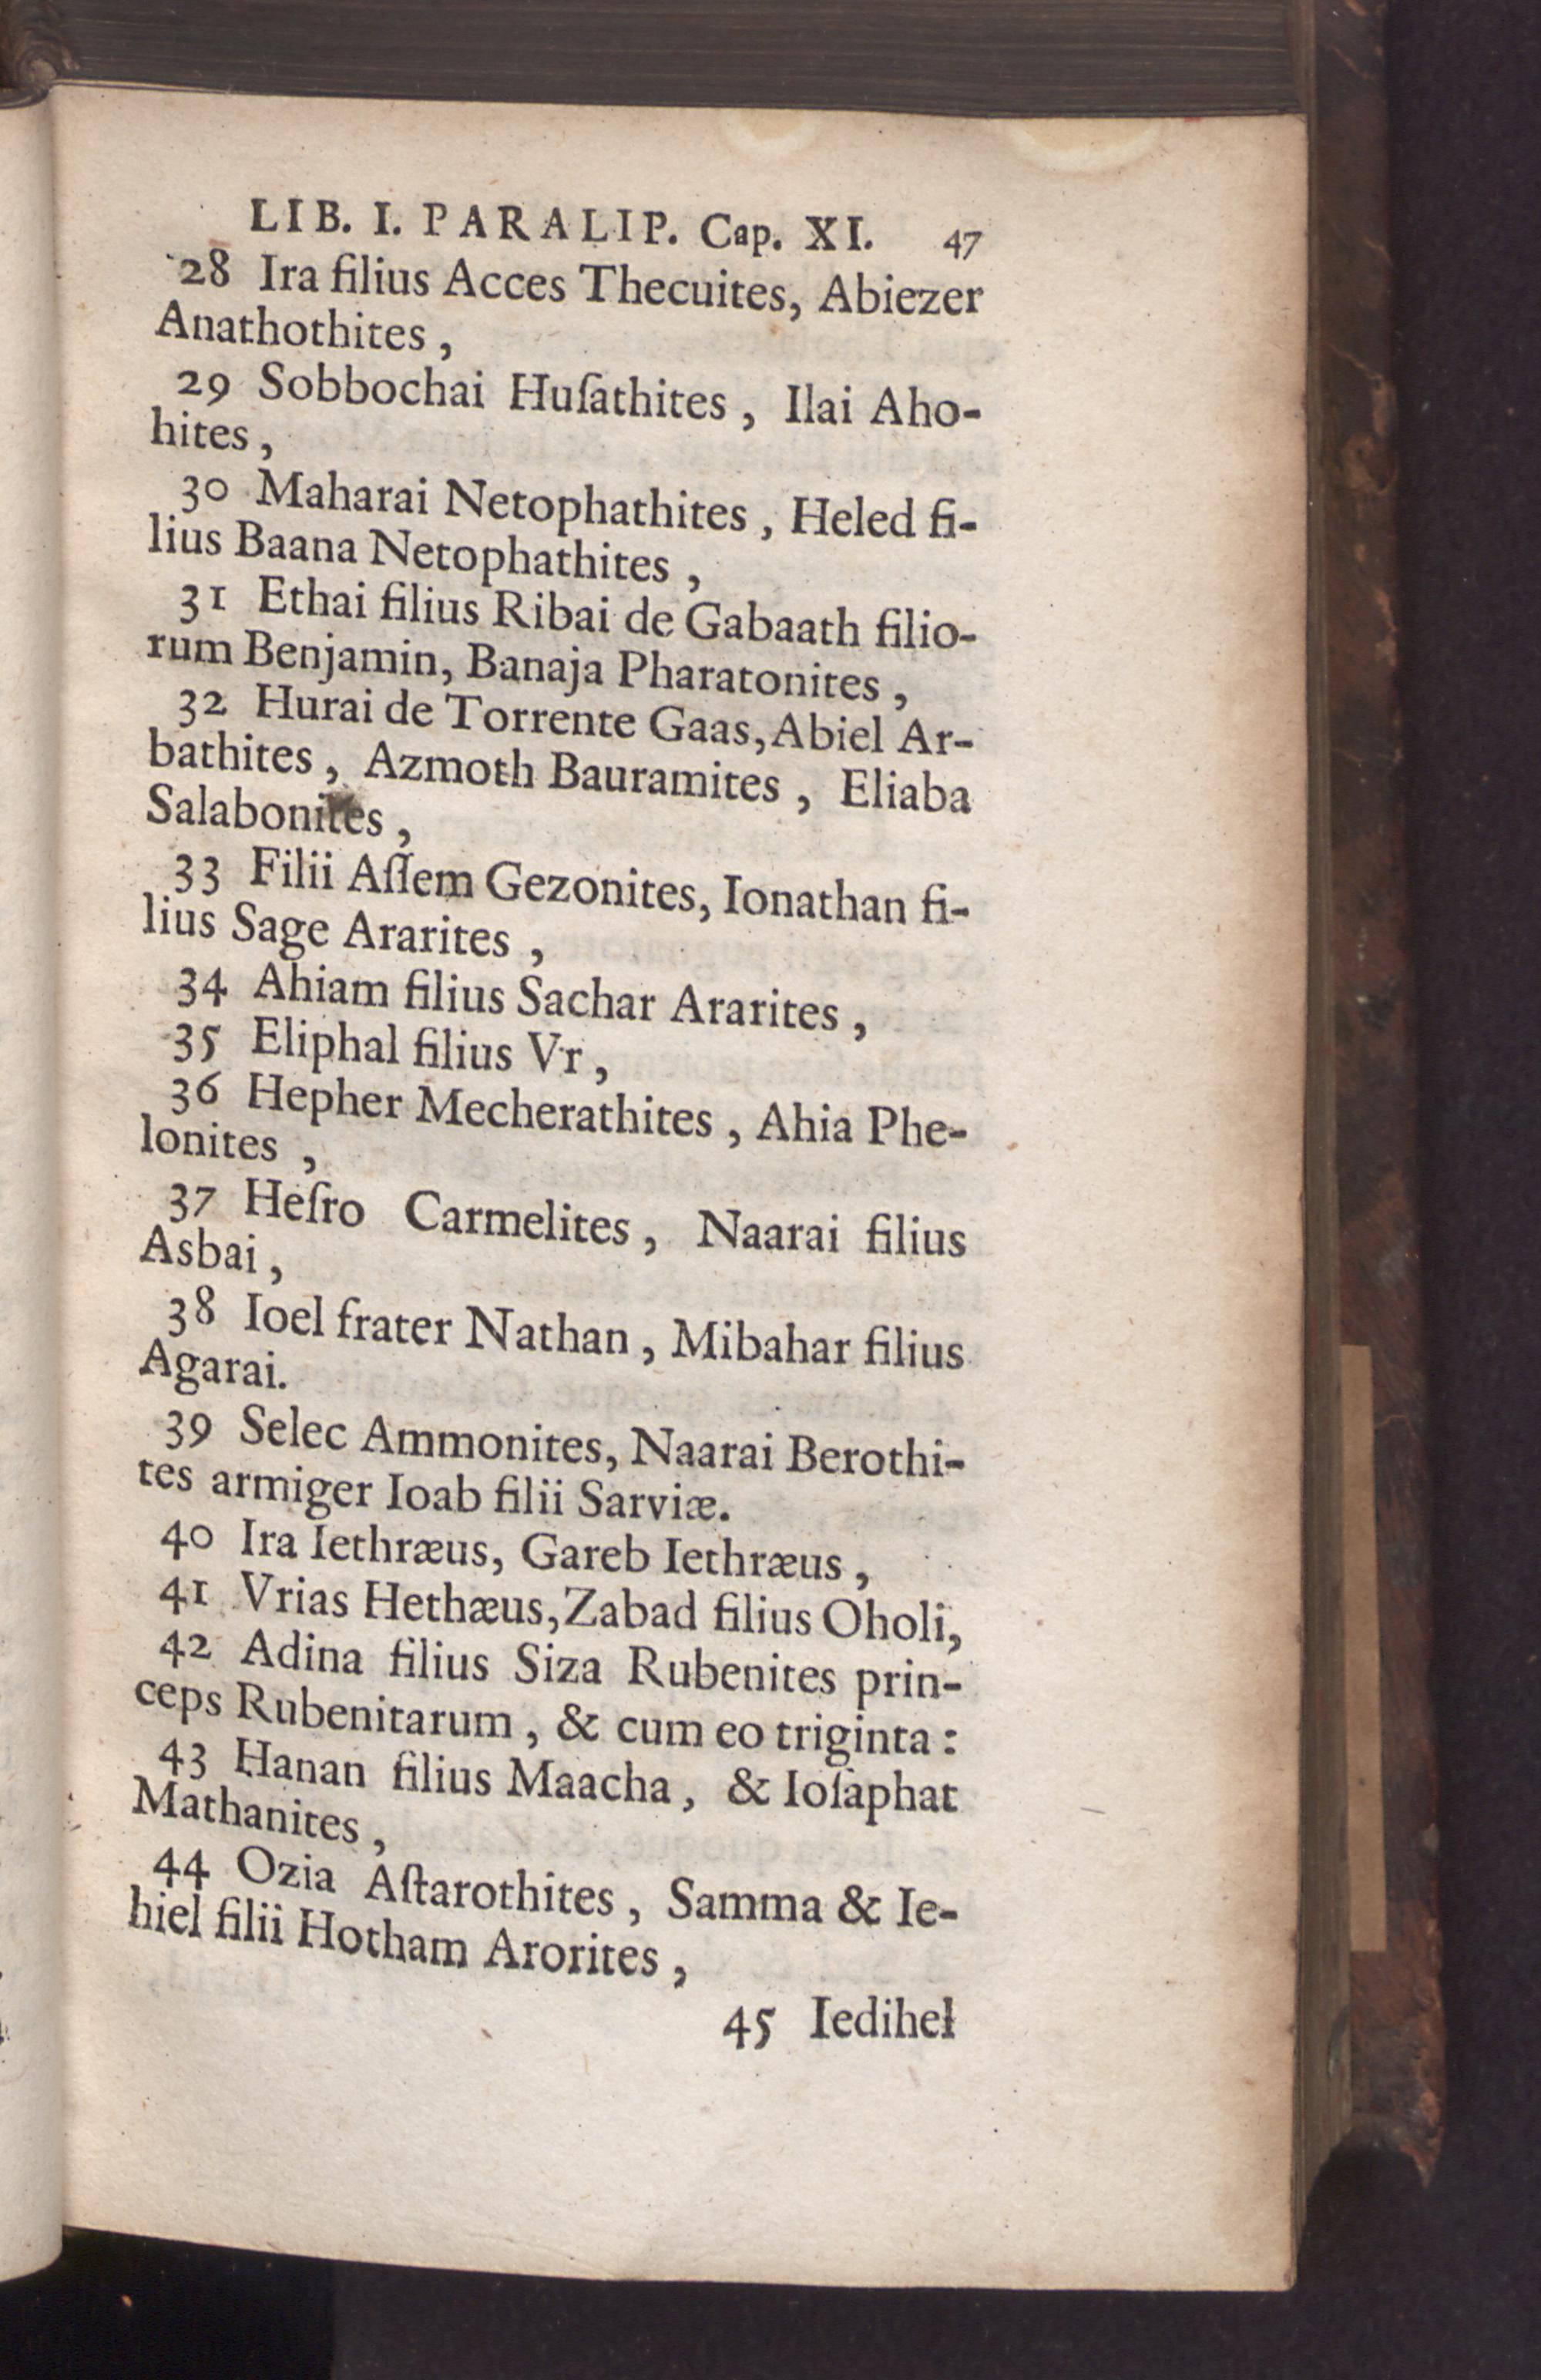 LIB. I. PARALIP. Cap. XI. 47
28 Ira filius Acces Thecuites, Abiezer
Anathothites,
29 Sobbochai Huſathites, Ilai Aho-
hites,
30 Maharai Netophathites, Heled fi-
lius Baana Netophathites,
31 Ethai filius Ribai de Gabaath filio-
rum Benjamin, Banaja Pharatonites,
32 Hurai de Torrente Gaas, Abiel Ar-
bathites, Azmoth Bauramites, Eliaba
Salabonites,
33 Filii Aſſem Gezonites, Ionathan fi-
lius Sage Ararites,
34 Ahiam filius Sachar Ararites,
35 Eliphal filius Vr,
36 Hepher Mecherathites, Ahia Phe-
lonites,
37 Heſro Carmelites, Naarai filius
Asbai,
38 Ioel frater Nathan, Mibahar filius
Agarai.
39 Selec Ammonites, Naarai Berothi-
tes armiger Ioab filii Sarviæ.
40 Ira Iethræus, Gareb Iethræus,
41 Vrias Hethæus, Zabad filius Oholi,
42 Adina filius Siza Rubenites prin-
ceps Rubenitarum, & cum eo triginta:
43 Hanan filius Maacha, & Ioſaphat
Mathanites,
44 Ozia Aſtarothites, Samma & Ie-
hiel filii Hotham Arorites,
45 Iedihel